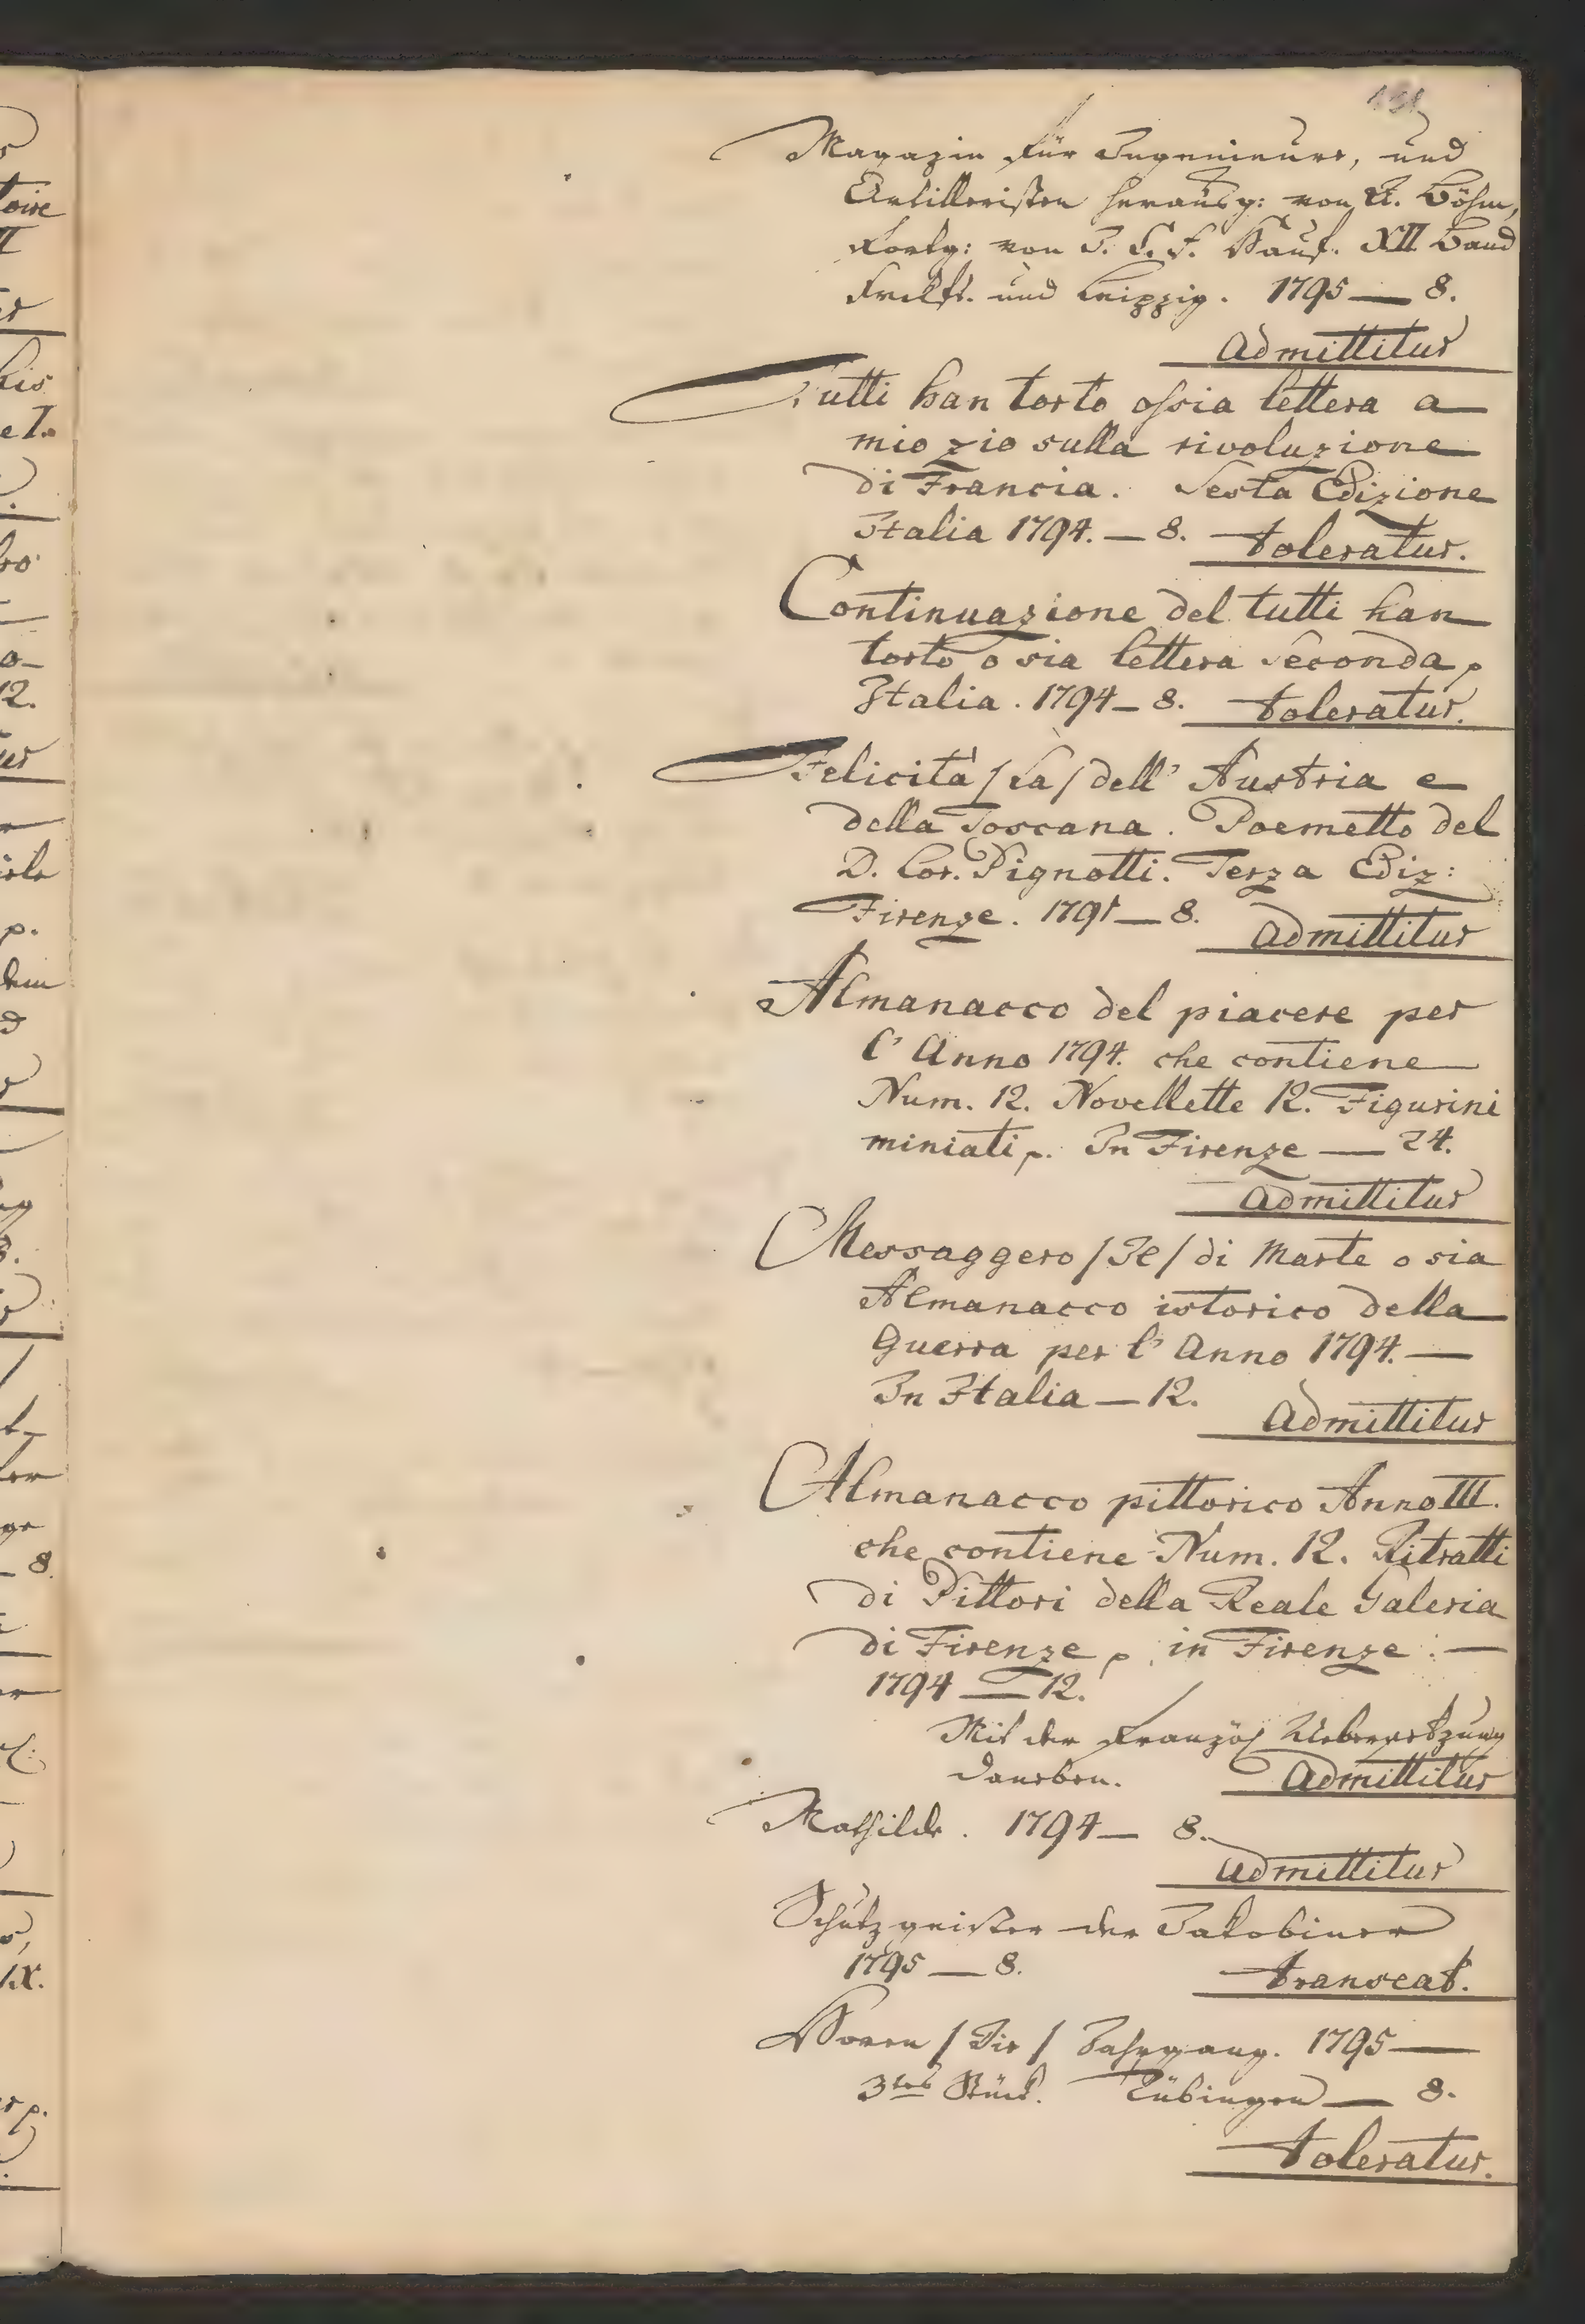 Magazin für Ingenieurs, und
Artilleristen herausg: von A. Böhm,
fortg: von J. C. F. Hauf. XII. Band
Frckft. und Leipzig. 1795 — 8.
Admittitur
Tutti han torto ossia lettera a
mio zio sulla rivoluzione
di Francia. Sesta Edizione
Italia 1794. — 8. toleratur.
Continuazione del tutti han
torto o sia lettera seconda p
Italia. 1794 — 8. toleratur.
Felicità /La/ dell' Austria e
della Toscana. Poemetto del
D. Lor. Pignotti. Terza Ediz:
Firenze. 1791 — 8. Admittitur
Almanacco del piacere per
l' Anno 1794. che contiene
Num. 12. Novellette 12. Figurini
miniati p. In Firenze — 24.
Admittitur
Messaggero /Il/ di Marte o sia
Almanacco istorico della
Guerra per l' Anno 1794. —
In Italia — 12. Admittitur
Almanacco pittorico Anno III.
che contiene Num. 12. Ritratti
di Pittori della Reale Galeria
di Firenze p. in Firenze. —
1794 — 12.
Mit der französ Uebersetzung
daneben. Admittitur
Mathilde. 1794 — 8.
Admittitur
Schutzgeister der Jakobiner
1795 — 8. transeat.
Horen /Die/ Jahrgang. 1795 —
3tes Stück. Tübingen — 8.
toleratur.